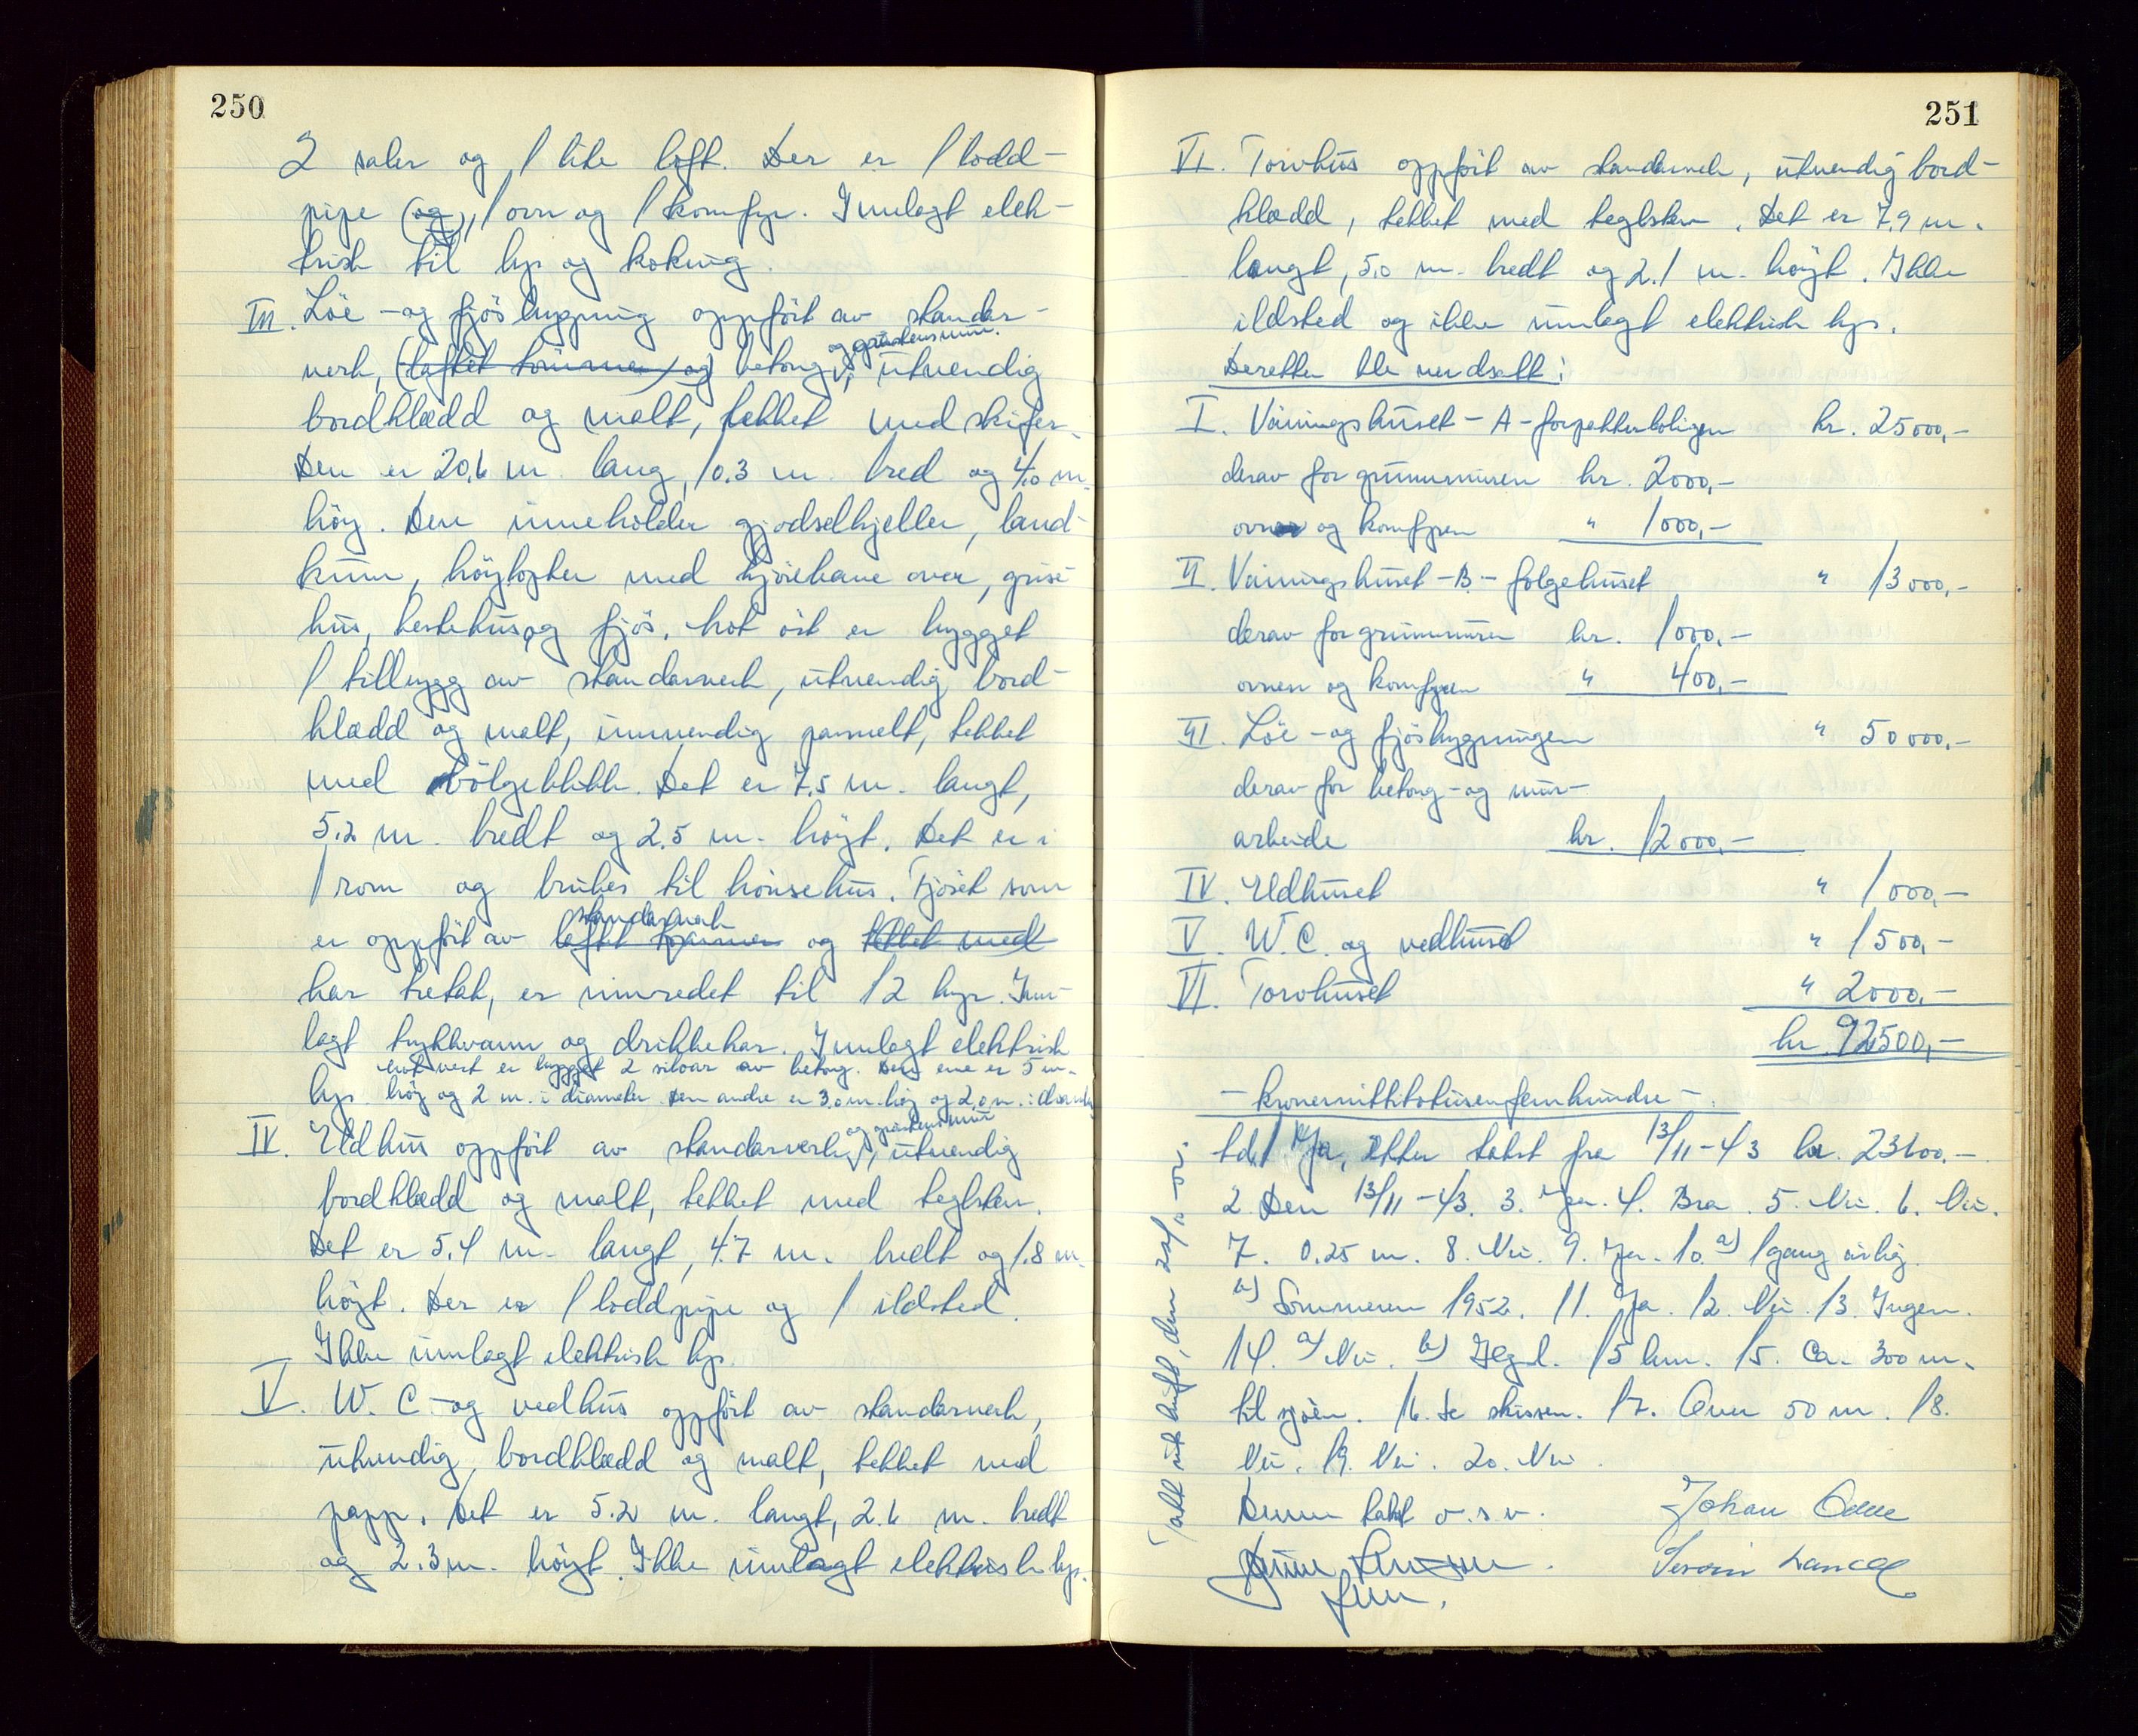 250
2 saler og 1 lite loft. Der er 1 lodd-
pipe (og), 1 ovn og 1 komfyr. Innlagt elek-
trisk til lys og koking.
III. Löe - og fjösbygning oppfört av stender-
og gråstensmur.
verk, (laftet tömmer og) betong, utvendig
bordkledd og malt, tekket med skifer.
Den er 20,6 m. lang, 10.3 m. bred og 4,0 m.
höy. Den inneholder gjödselkjeller, land-
kum, höytopter med kjörebane over, grise-
hus, hestehus og fjös. Mot öst er bygget
1 tillegg av standarverk, utvendig bord-
kledd og malt, innvendig pannelt, tekket
med bölgeblikk. Det er 7,5 m. langt,
5,2 m. bredt og 2,5 m. höyt. Det er i
1 rom og brukes til hönsehus. Fjöset som
standarverk
er oppfört av laftet tömmer og tekket med
har tretak, er innredet til 12 kyr. Inn-
lagt trykkvann og drikkekar. Innlagt elektrisk
Mot vest er bygget 2 siloar av betong. Den ene er 5 m.
lys. höy og 2 m. i diameter. Den andre er 3,0 m. höy og 2,0 m. i diameter
og gråstensmur
IV. Eldhus oppfört av standarverk, utvendig
bordkledd og malt, tekket med teglsten.
Det er 5,4 m. langt, 4.7 m. bredt og 1.8 m.
höyt. Der er 1 loddpipe og 1 ildsted.
Ikke innlagt elektrisk lys.
V. W. C. - og vedhus oppfört av standarverk,
utvendig bordkledd og malt, tekket med
papp. Det er 5.2 m. langt, 2.6 m. bredt
og 2.3 m. höyt. Ikke innlagt elektrisk lys.
251
VI. Torvhus oppfört av standarverk, utvendig bord-
kledd, tekket med teglsten. Det er 7,9 m.
langt, 5,0 m. bredt og 2.1 m. höyt. Ikke
ildsted og ikke innlagt elektrisk lys.
Deretter ble verdsatt:
I. Våningshuset - A - forpakterboligen kr. 25000,-
derav for grunnmuren kr. 2000,-
ovner og komfyren " 1000,-
II. Våningshuset - B - folgehuset " 13000,-
derav for grunnmuren kr. 1000,-
ovnen og komfyren " 400,-
III. Löe - og fjösbygningen " 50000,-
derav for betong - og mur-
arbeide kr. 12000,-
IV. Eldhuset " 1000,-
V. W. C. og vedhuset " 1500,-
VI. Torvhuset " 2000,-
kr. 92500,-
- kronernittitotusenfemhundre -.
1. Ja, etter takst fra 13/11-43 kr. 23600.-
2. Den 13/11-43. 3. Ja. 4. Bra. 5. Nei. 6. Nei.
7. 0.25 m. 8. Nei. 9. Ja. 10. a) 1 gang årlig.
b) Sommeren 1952. 11. Ja. 12. Nei. 13. Ingen.
14. a) Nei. b) 15 km. 15. Ca. 300 m.
til sjöen. 16. Se skissen. 17. Over 50 m. 18.
Nei. 19. Nei. 20. Nei.
Denne takst o.s.v. Johan